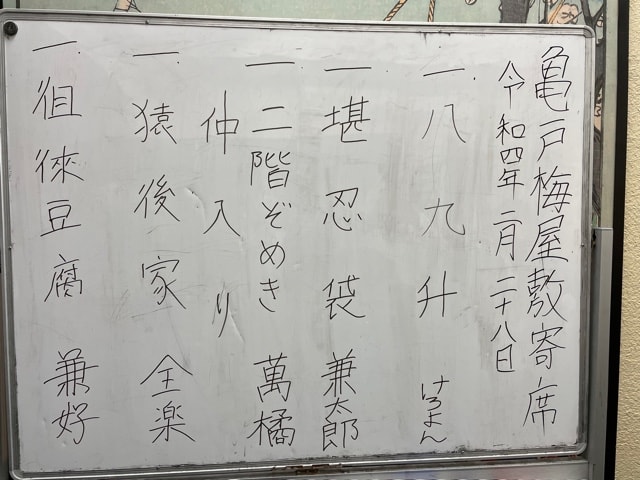 亀戸梅屋敷寄席
令和四年二月二十八日
一．八九升 けろよん
一．堪忍袋 兼太郎
一．二階ぞめき 萬橘
仲入り
一．猿後家 全楽
一．徂徠豆腐 兼好